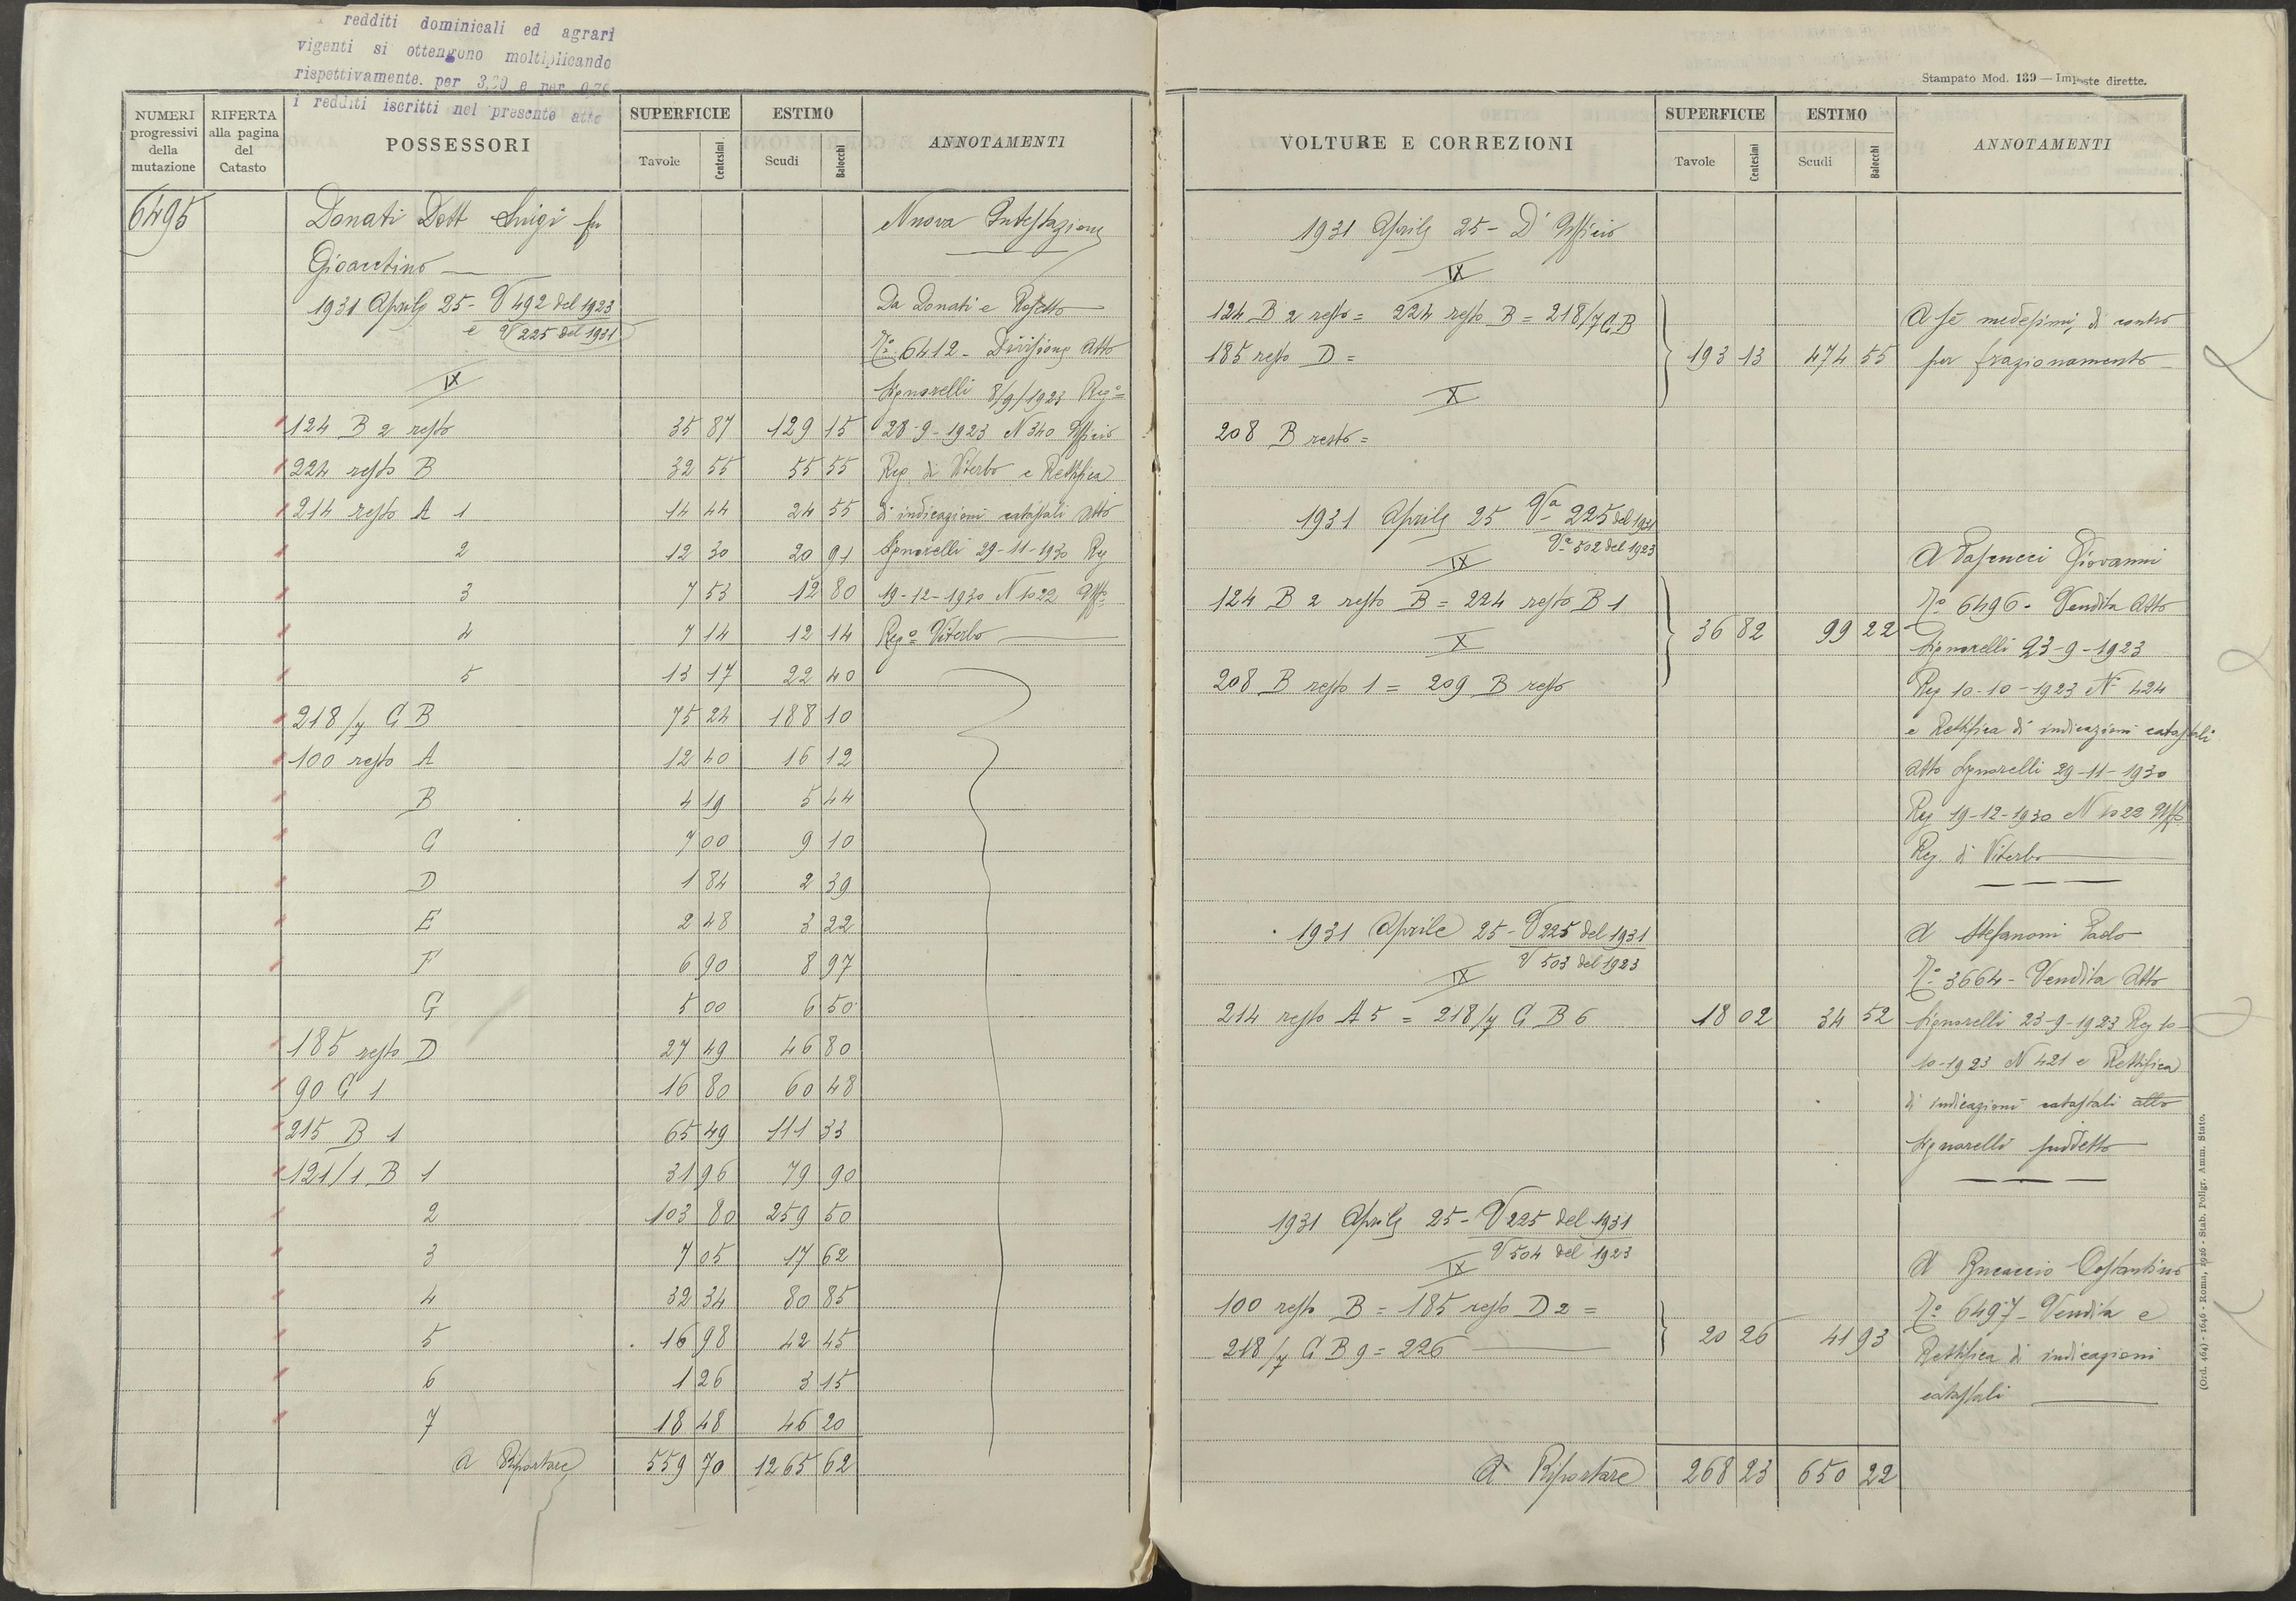 redditi dominicali ed agrari
vigenti si ottengono moltiplicando
rispettivamente. per 3,20 e per 0,70
i redditi iscritti nel presente atto
NUMERI progressivi della mutazione
RIFERTA alla pagina del Catasto
POSSESSORI
SUPERFICIE
Tavole Centesimi
ESTIMO
Scudi Baiocchi
ANNOTAMENTI
6495 Donati Dott Luigi fu
Gioacchino
1931 Aprile 25 - V 492 del 1923
e V 225 del 1931
IX
124 B 2 resto 35 87 129 15
224 resto B 32 55 55 55
214 resto A 1 14 44 24 55
2 12 30 20 91
3 7 53 12 80
4 7 14 12 14
5 13 17 22 40
218/7 C B 75 24 188 10
100 resto A 12 40 16 12
B 4 19 5 44
C 7 00 9 10
D 1 84 2 39
E 2 48 3 22
F 6 90 8 97
G 5 00 6 50
185 resto D 27 49 46 80
90 C 1 16 80 60 48
215 B 1 65 49 111 33
121/1 B 1 31 96 79 90
2 103 80 259 50
3 7 05 17 62
4 32 34 80 85
5 16 98 42 45
6 1 26 3 15
7 18 48 46 20
A Riportare 559 70 1265 62
Nuova Intestazione
Da Donati e
No 6412 - Divisione Atto
Signorelli 8/9/1923 Rego
28-9-1923 N 340 Ufficio
Reg. di Viterbo e Rettifica
di indicazioni catastali Atto
Signorelli 29-11-1930 Reg
19-12-1930 N 1022 Uffo
Rego Viterbo
Stampato Mod. 139 — Imposte dirette.
VOLTURE E CORREZIONI
SUPERFICIE
Tavole Centesimi
ESTIMO
Scudi Baiocchi
ANNOTAMENTI
1931 Aprile 25 - D'Ufficio
IX
124 B 2 resto = 224 resto B = 218/7 C B
185 resto D = 193 13 474 55
X
208 B resto =
A sé medesimi di contro
per frazionamento
1931 Aprile 25 Va 225 del 1931
Va 502 del 1923
IX
124 B 2 resto B = 224 resto B 1
X 36 82 99 22
208 B resto 1 = 209 B resto
A Pascucci Giovanni
No 6496 - Vendita Atto
Signorelli 23-9-1923
Reg 10-10-1923 No 424
e Rettifica di indicazioni catastali
Atto Signorelli 29-11-1930
Reg 19-12-1930 N 1022 Uffo
Reg. di Viterbo
1931 Aprile 25 - V 225 del 1931
V 503 del 1923
IX
214 resto A 5 = 218/7 C B 6 18 02 34 52
A Stefanoni Paolo
No 3664 - Vendita Atto
Signorelli 23-9-1923 Reg 10-
10-1923 N 421 e Rettifica
di indicazioni catastali atto
Signorelli suddetto
1931 Aprile 25 - V 225 del 1931
V 504 del 1923
IX
100 resto B = 185 resto D 2 =
218/7 C B 9 = 226 20 26 41 93
A Costantino
No 6497 - Vendita e
Rettifica di indicazioni
catastali
A Riportare 268 23 650 22
(Ord. 464) - 1646 - Roma, 1926 - Stab. Poligr. Amm. Stato.